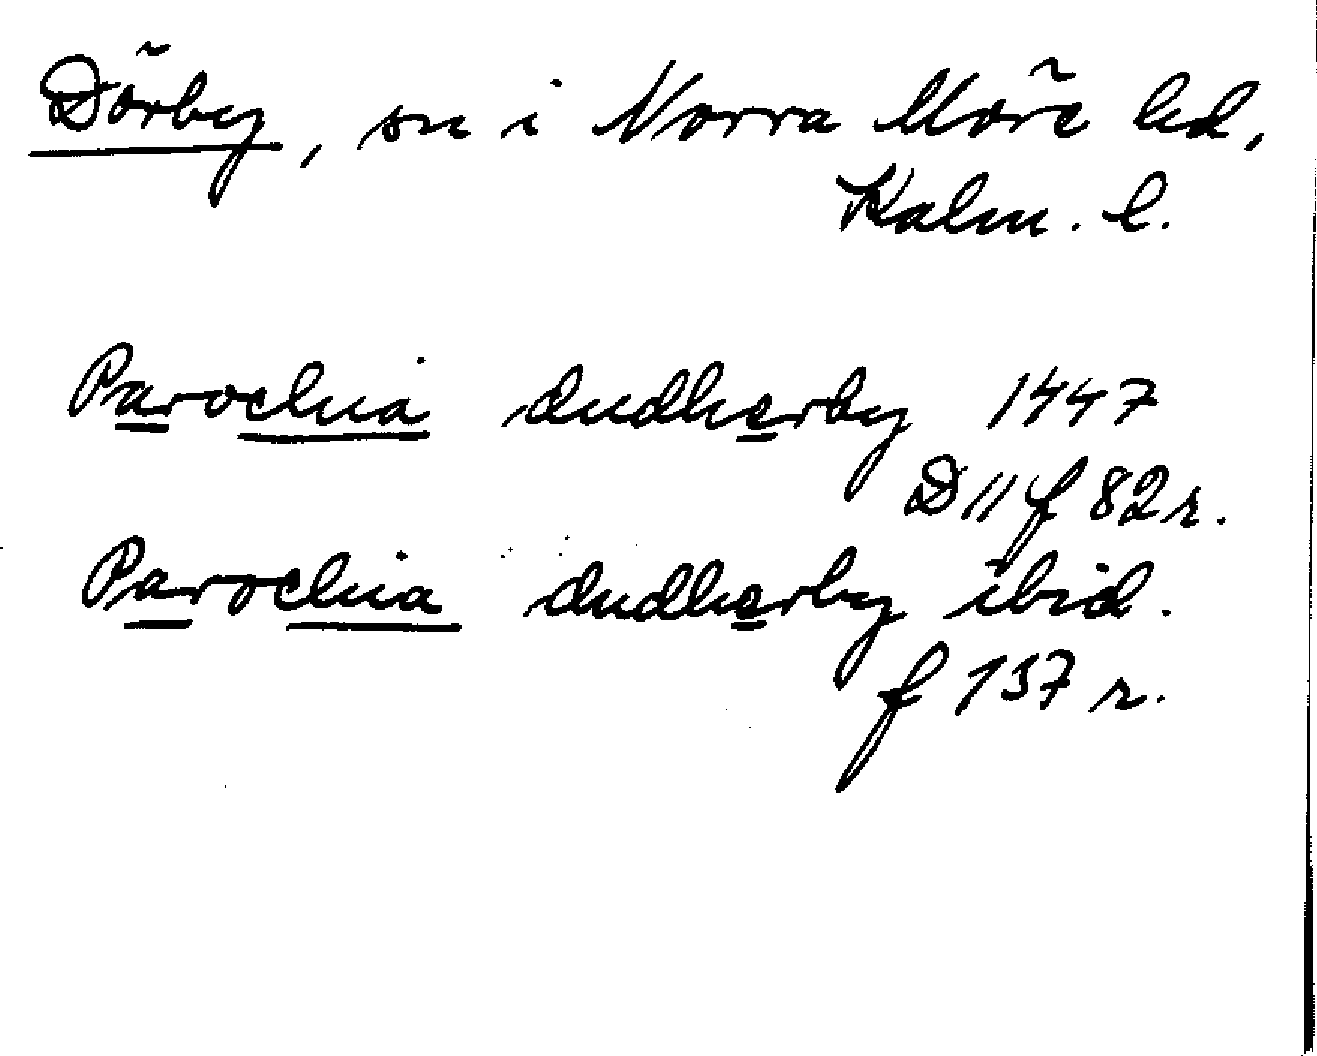 Dörby, sn i Norra Möre hd,
Kalm. l.
Parochia dudherby 1447
D 11 f 82 r.
Parochia dudherby ibid.
f 137 r.